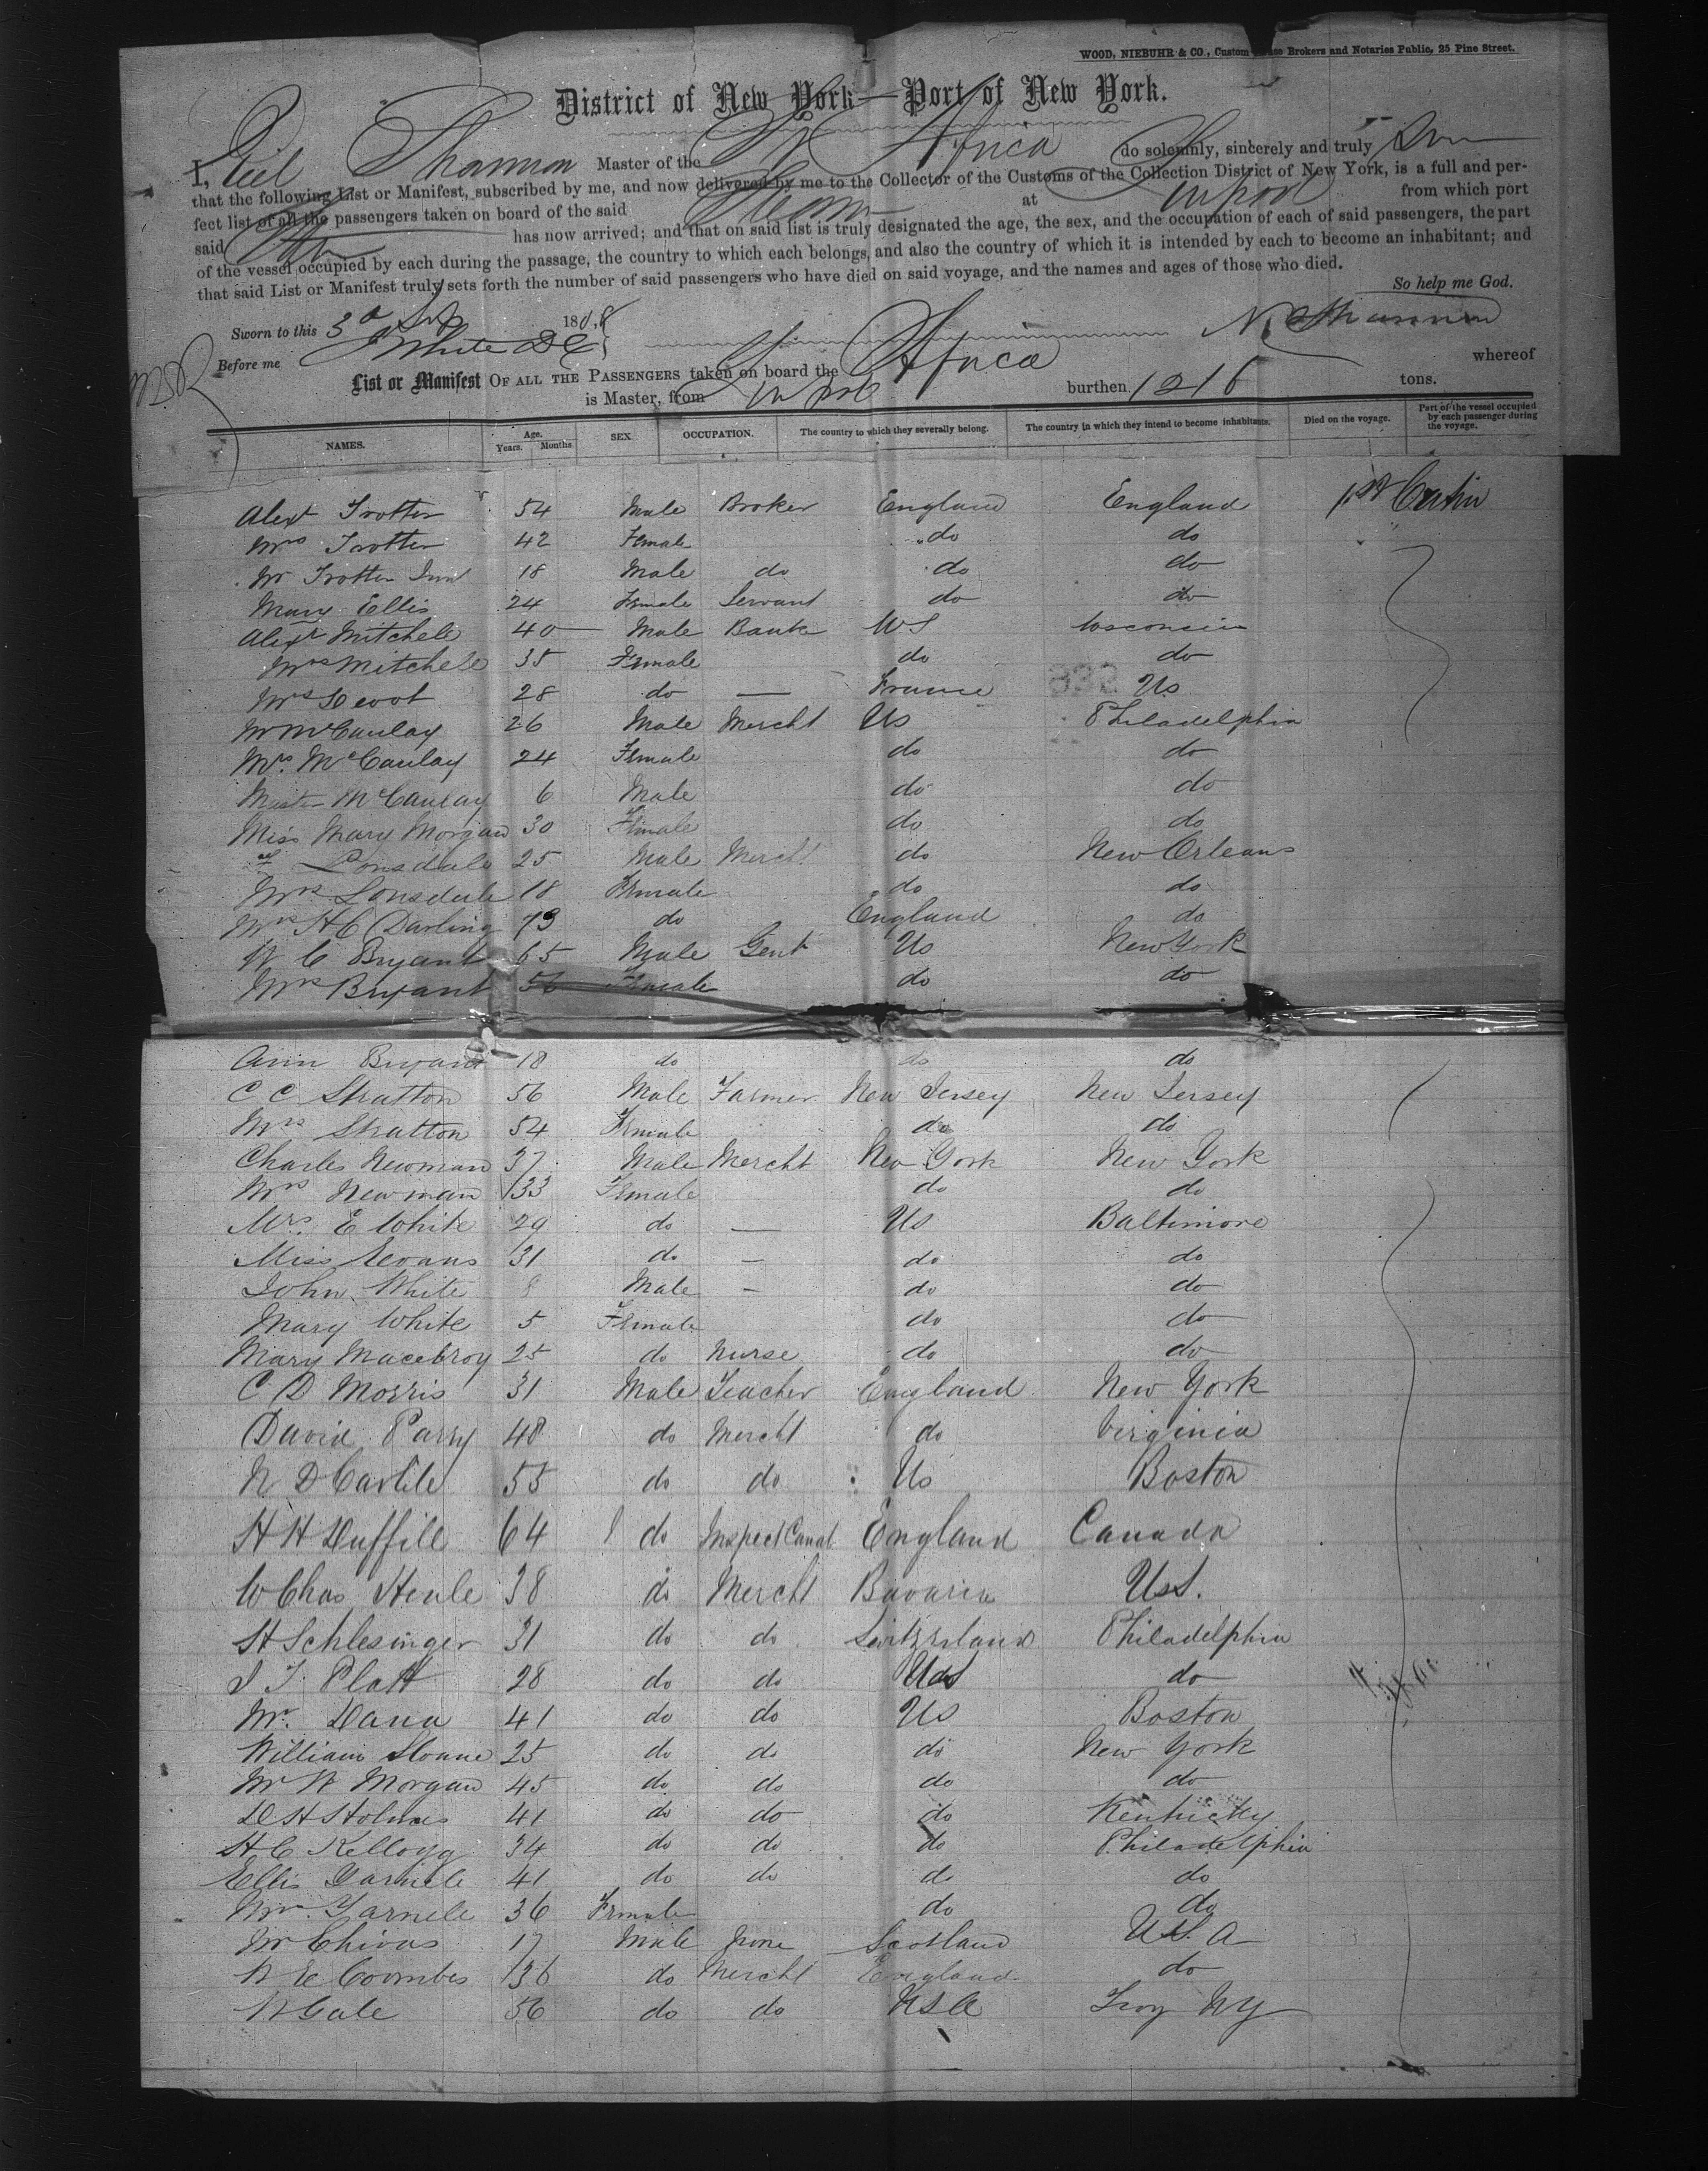 WOOD, NIEBUHR & CO., Custom Brokers and Notaries Public, 25 Pine Street.
District of New York—Port of New York.
I, Neil Shannon Master of the Africa do solemnly, sincerely and truly
that the following List or Manifest, subscribed by me, and now delivered by me to the Collector of the Customs of the Collection District of New York, is a full and per-
fect list of all the passengers taken on board of the said at from which port
said has now arrived; and that on said list is truly designated the age, the sex, and the occupation of each of said passengers, the part
of the vessel occupied by each during the passage, the country to which each belongs, and also the country of which it is intended by each to become an inhabitant; and
that said List or Manifest truly sets forth the number of said passengers who have died on said voyage, and the names and ages of those who died.
So help me God.
Sworn to this 3d 1858 N. Shannon
Before me J White
List or Manifest OF ALL THE PASSENGERS taken on board the Africa whereof
is Master, from burthen, tons.
NAMES. Age. Years. Months SEX OCCUPATION. The country to which they severally belong. The country in which they intend to become inhabitants. Died on the voyage. Part of the vessel occupied by each passenger during the voyage.
Alexr Trotter 54 Male Broker England England 1st Cabin
Mrs Trotter 42 Female do do
Mr Trotter Junr 18 Male do do do
Mary Ellis 24 Female Servant do do
Alexr Mitchell 40 Male Banker US Wisconsin
Mrs Mitchell 35 Female do do
Mrs 28 do — France Us
Mr McCaulay 26 Male Mercht Us Philadelphia
Mrs. McCaulay 24 Female do do
Master McCaulay 6 Male do do
Miss Mary Morgan 30 Female do do
F Lonsdale 25 Male Mercht do New Orleans
Mrs Lonsdale 18 Female do do
Mrs H C Darling 73 do England do
W C Bryant 65 Male Gent Us New York
Mrs Bryant 56 Female do do
Ann Bryant 18 do do do
C C Stratton 56 Male Farmer New Jersey New Jersey
Mrs Stratton 54 Female do do
Charles Newman 37 Male Mercht New York New York
Mrs Newman 33 Female do do
Mrs. E White 29 do — Us Baltimore
Miss Evans 31 do — do do
John White 8 Male — do do
Mary White 5 Female do do
Mary 25 do Nurse do do
C D Morris 31 Male Teacher England New York
David Parry 48 do Mercht do Virginia
N D Carlile 55 do do Us Boston
H H Duffill 64 do Inspect Canal England Canada
W Chas Henle 38 do Mercht Bavaria US.
H Schlesinger 31 do do Switzerland Philadelphia
J T Platt 28 do do US do
Mr. Dana 41 do do Us Boston
William Sloane 25 do do do New York
Mr W Morgan 45 do do do do
D H Holmes 41 do do do Kentucky
H C Kellogg 34 do do do Philadelphia
Ellis Yarnall 41 do do do do
Mrs. Yarnell 36 Female do do
Mr Chivas 17 Male None Scotland U.S. A
W E Coombes 36 do Mercht England do
W Gale 56 do do USA Troy NY